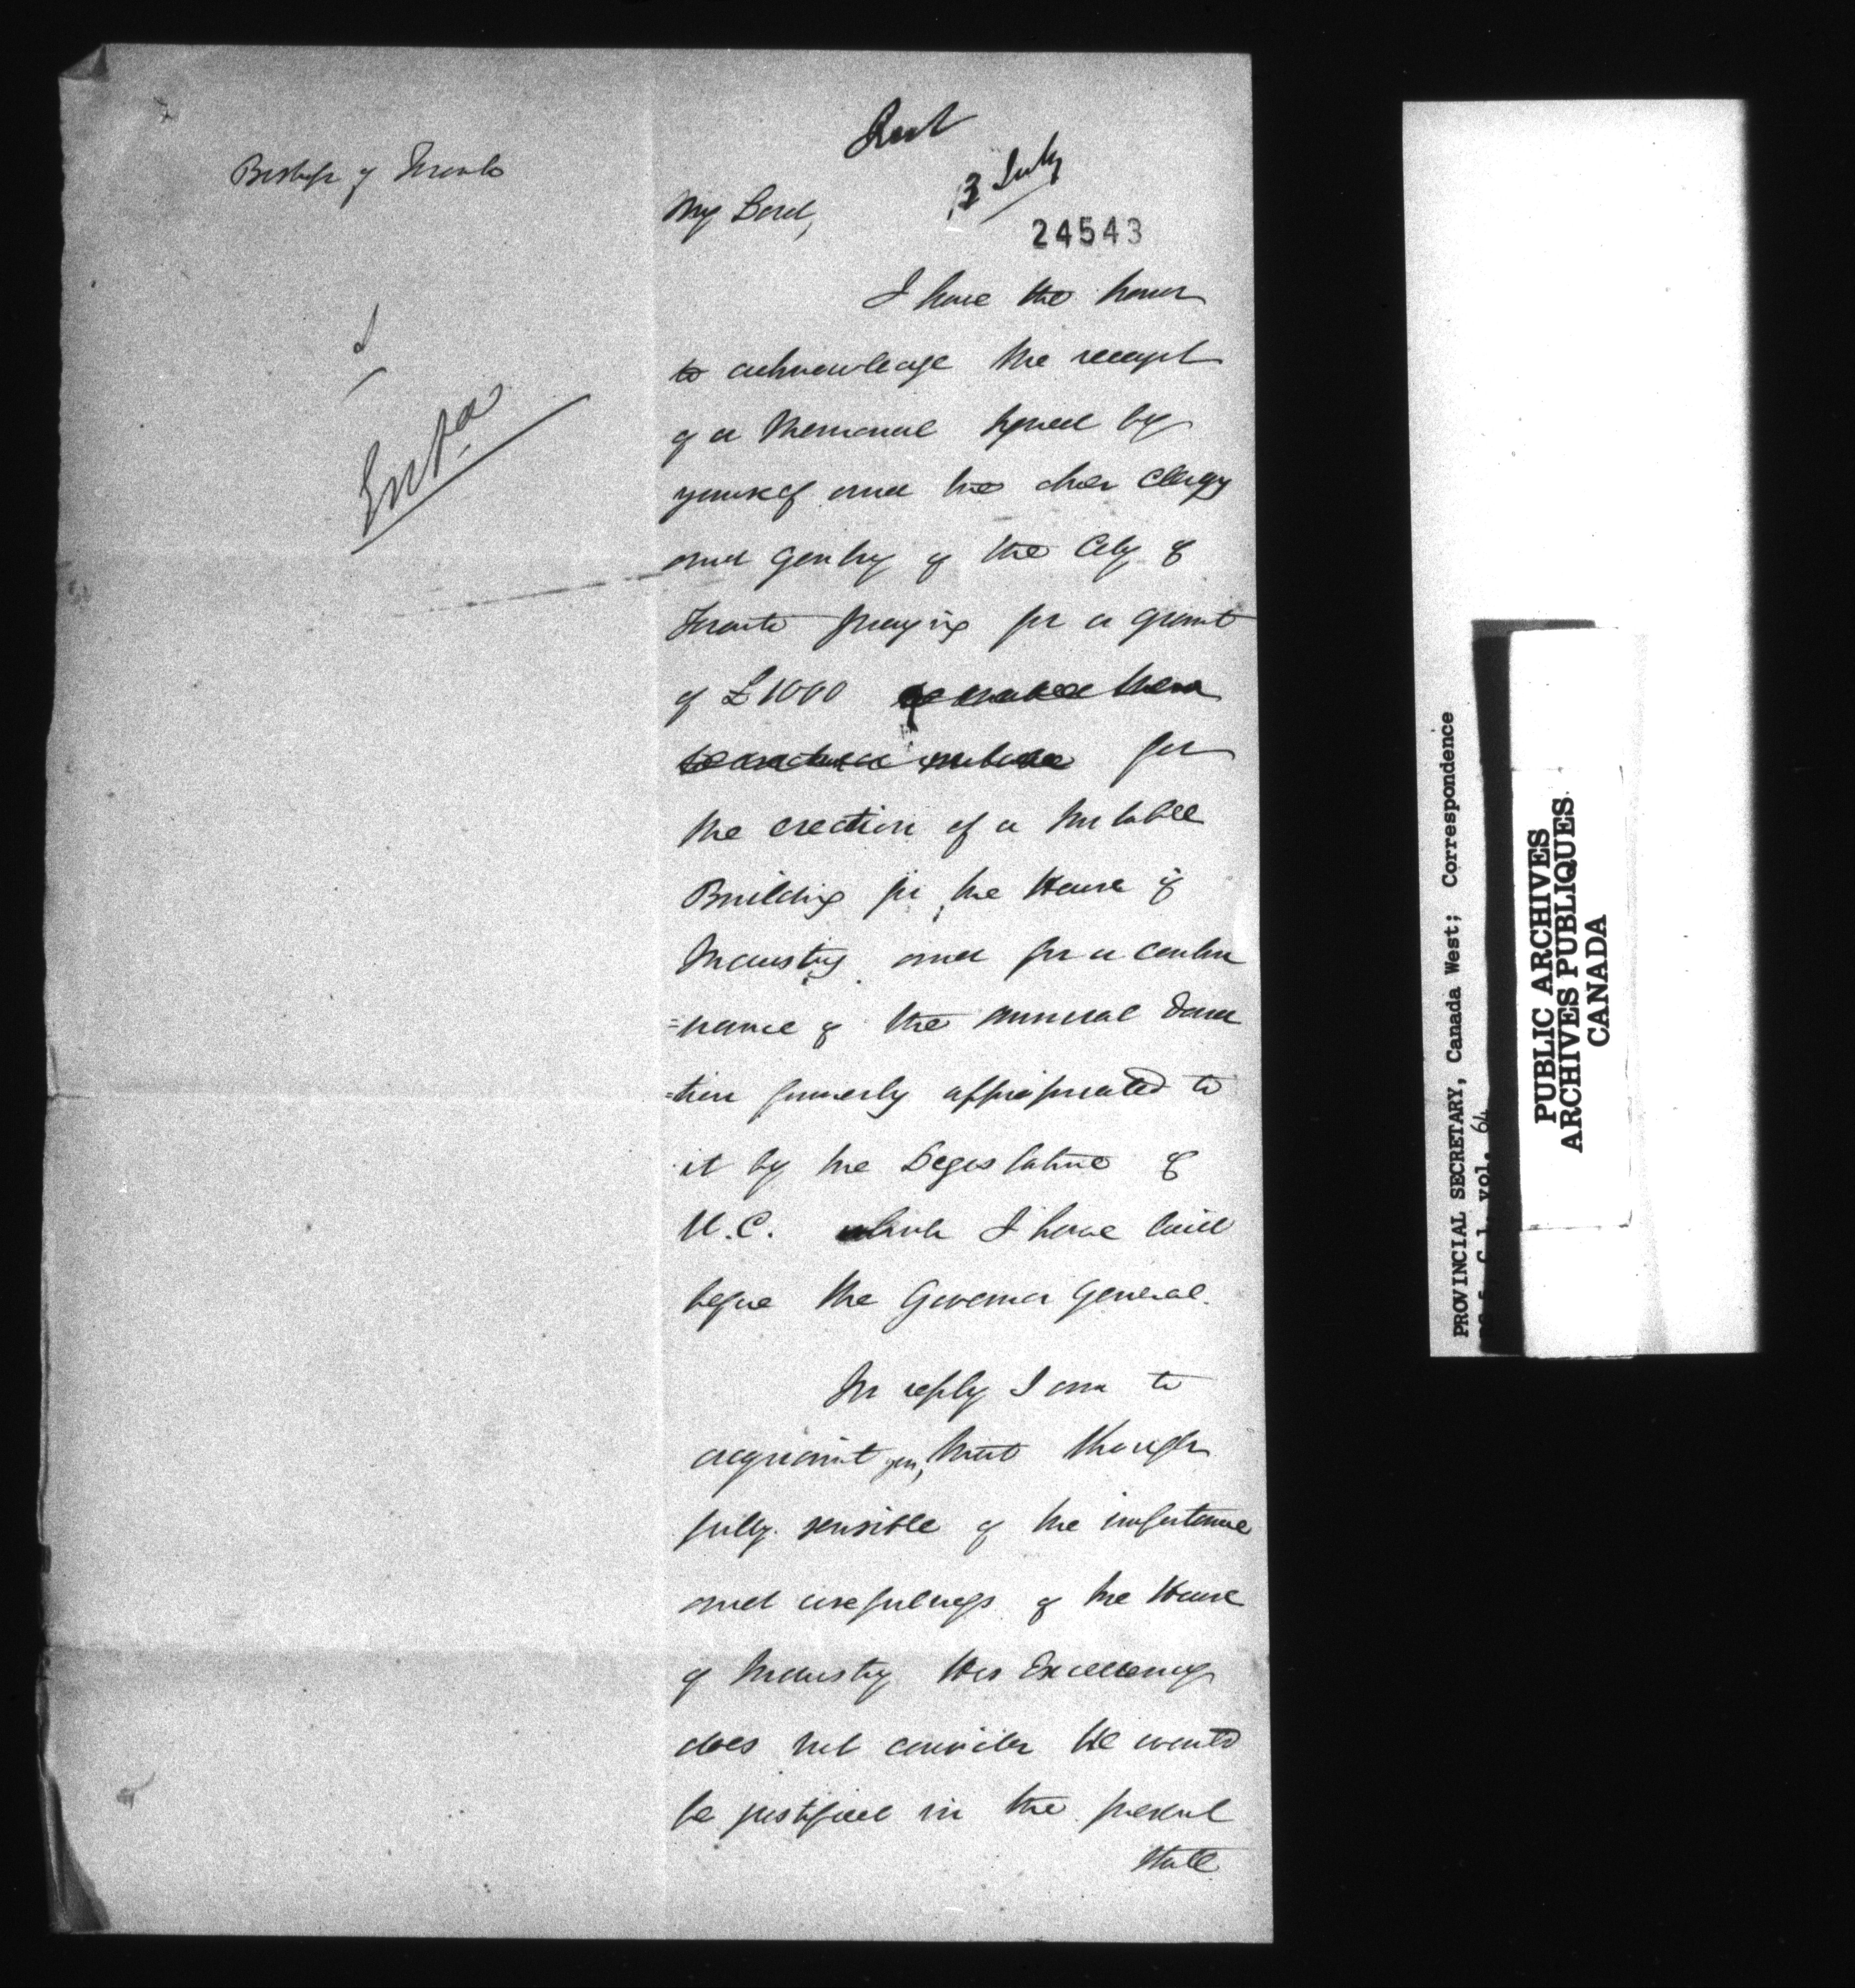 Bishop of Toronto
Entd
3 July
My Lord,
24543
I have the honor
to acknowledge the receipt
of a Memorial signed by
yourself and the other Clergy
and Gentry of the City of
Toronto praying for a grant
of £1000
for
the erection of a suitable
Building for the House of
Industry and for a contin
=uance of the annual dona
=tion formerly appropriated to
it by the Legislature of
U.C. which I have laid
before the Governor General.
In reply I am to
acquaint you, that though
fully sensible of the importance
and usefulness of the House
of Industry His Excellency
does not consider He would
be justified in the present
state
PROVINCIAL SECRETARY, Canada West; Correspondence
vol. 64
PUBLIC ARCHIVES
ARCHIVES PUBLIQUES
CANADA